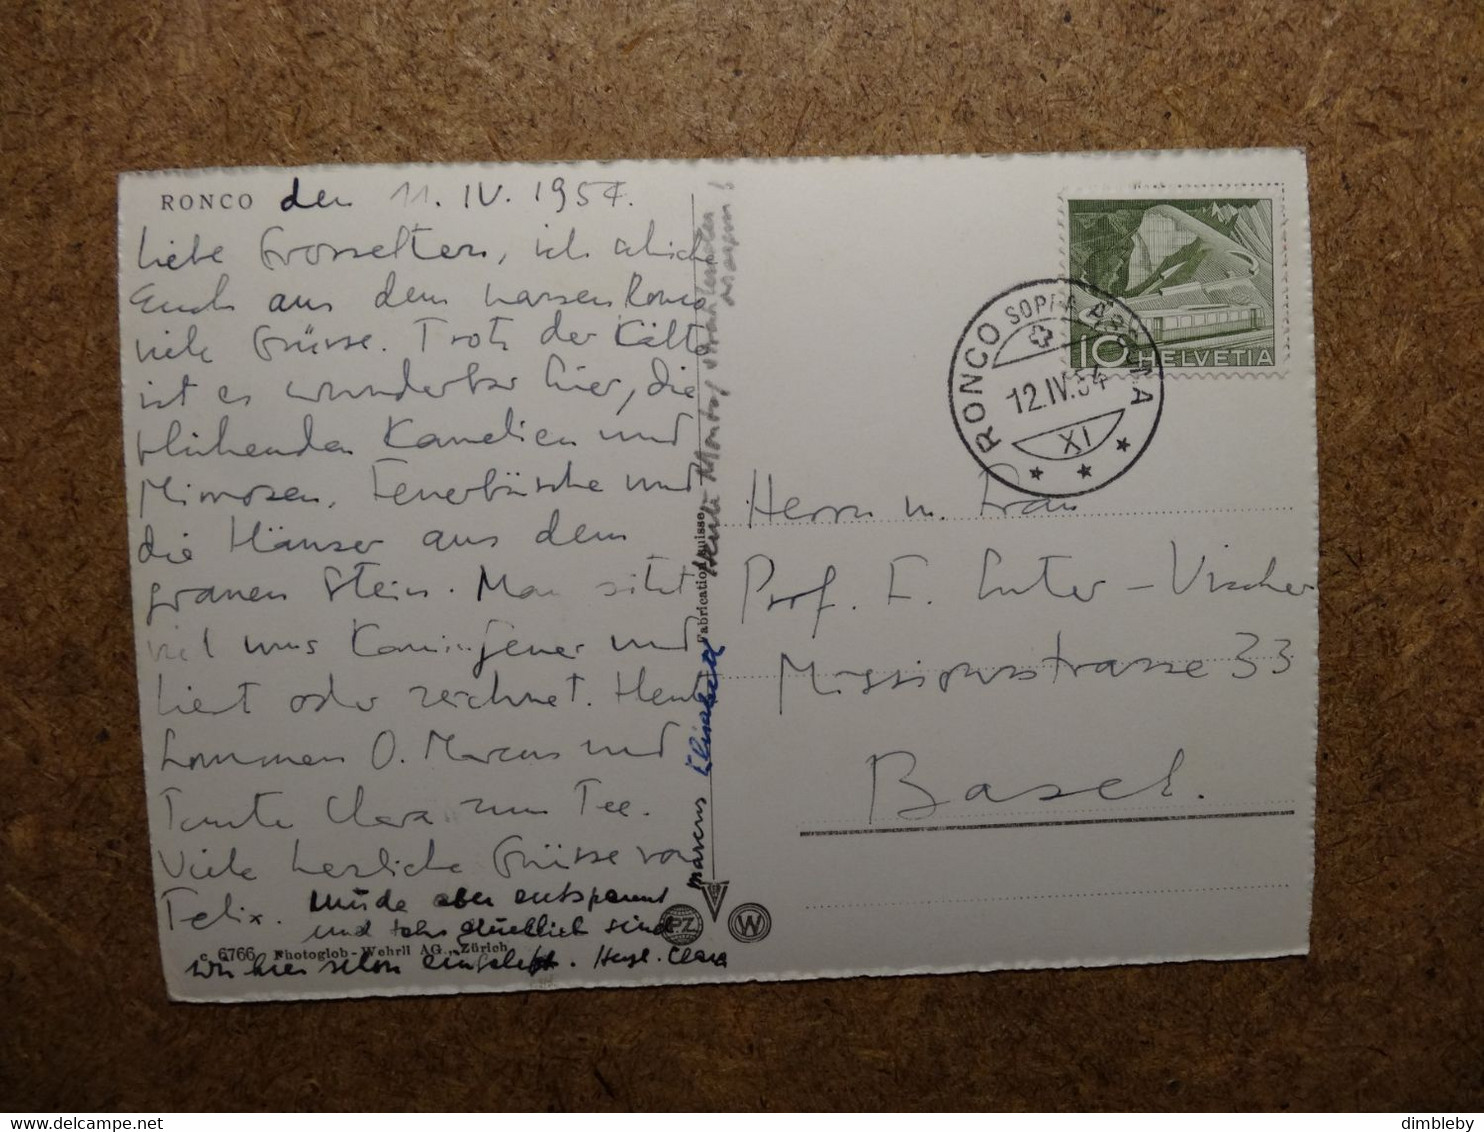 RONCO den 11. IV. 1954.
Liebe Grosseltern, ich schicke
Euch aus dem nassen Ronco
viele Grüsse. Trotz der Kälte
ist es wunderbar hier, die
blühenden Kamelien und
Mimosen, Feuerbüsche und
die Häuser aus dem
grauen Stein. Man sitzt
viel ums Kaminfeuer und
liest oder zeichnet. Heute
kommen O. Marcus und
Tante Clara zum Tee.
Viele herzliche Grüsse von
Felix.
Müde aber entspannt
und sehr glücklich sind
wir hier schon eingelebt. Herzl. Clara
Marcus Elisabeth
Heute Montag strahlender
Morgen!
Fabrication suisse
c 6766 Photoglob-Wehrli AG., Zürich
PZ
W
10 HELVETIA
RONCO SOPRA ASCONA
12.IV.54
XI
Herrn u. Frau
Prof. F. Suter-Vischer
Missionsstrasse 33
Basel.
delcampe.net
dimbleby